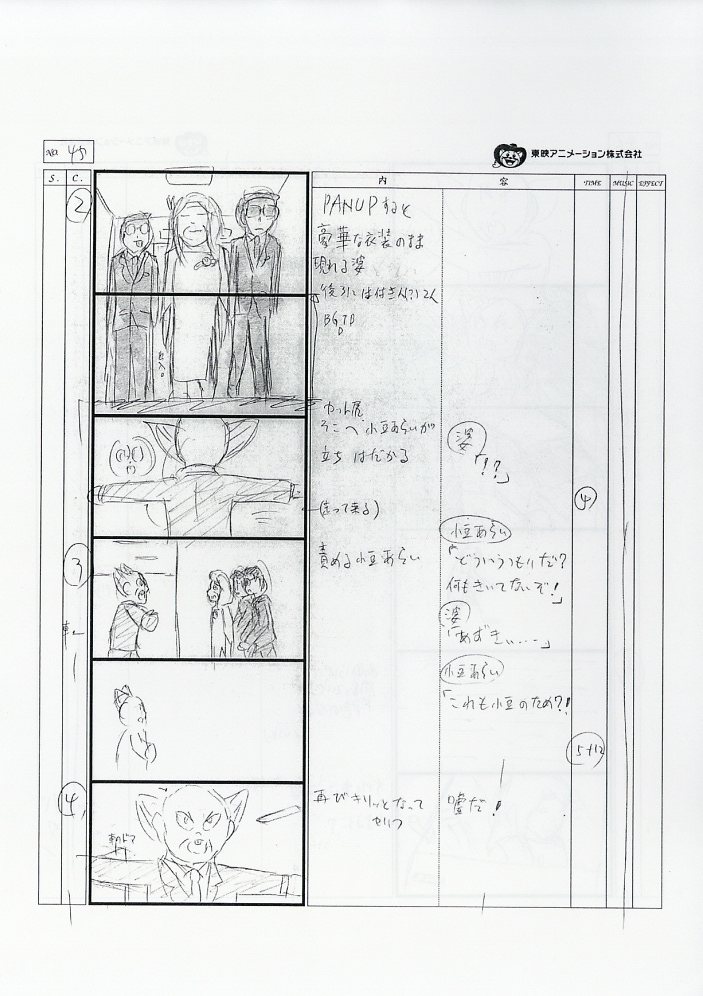 No. 45
東映アニメーション株式会社
S. C. 内容 TIME MUSIC EFFECT
②
PANUPすると
豪華な衣装のまま
現れる婆
BG
カット尻
そこへ、小豆あらいが
立ちはだかる
婆
「!?」
(走って来る)
④
③
責める小豆あらい
小豆あらい
「どういうつもりだ?
何もきいてないぞ!」
婆
「あずきぃ・・・」
小豆あらい
「これも小豆のため?!
5+12
④
再びキリッとなって
セリフ
嘘だ!